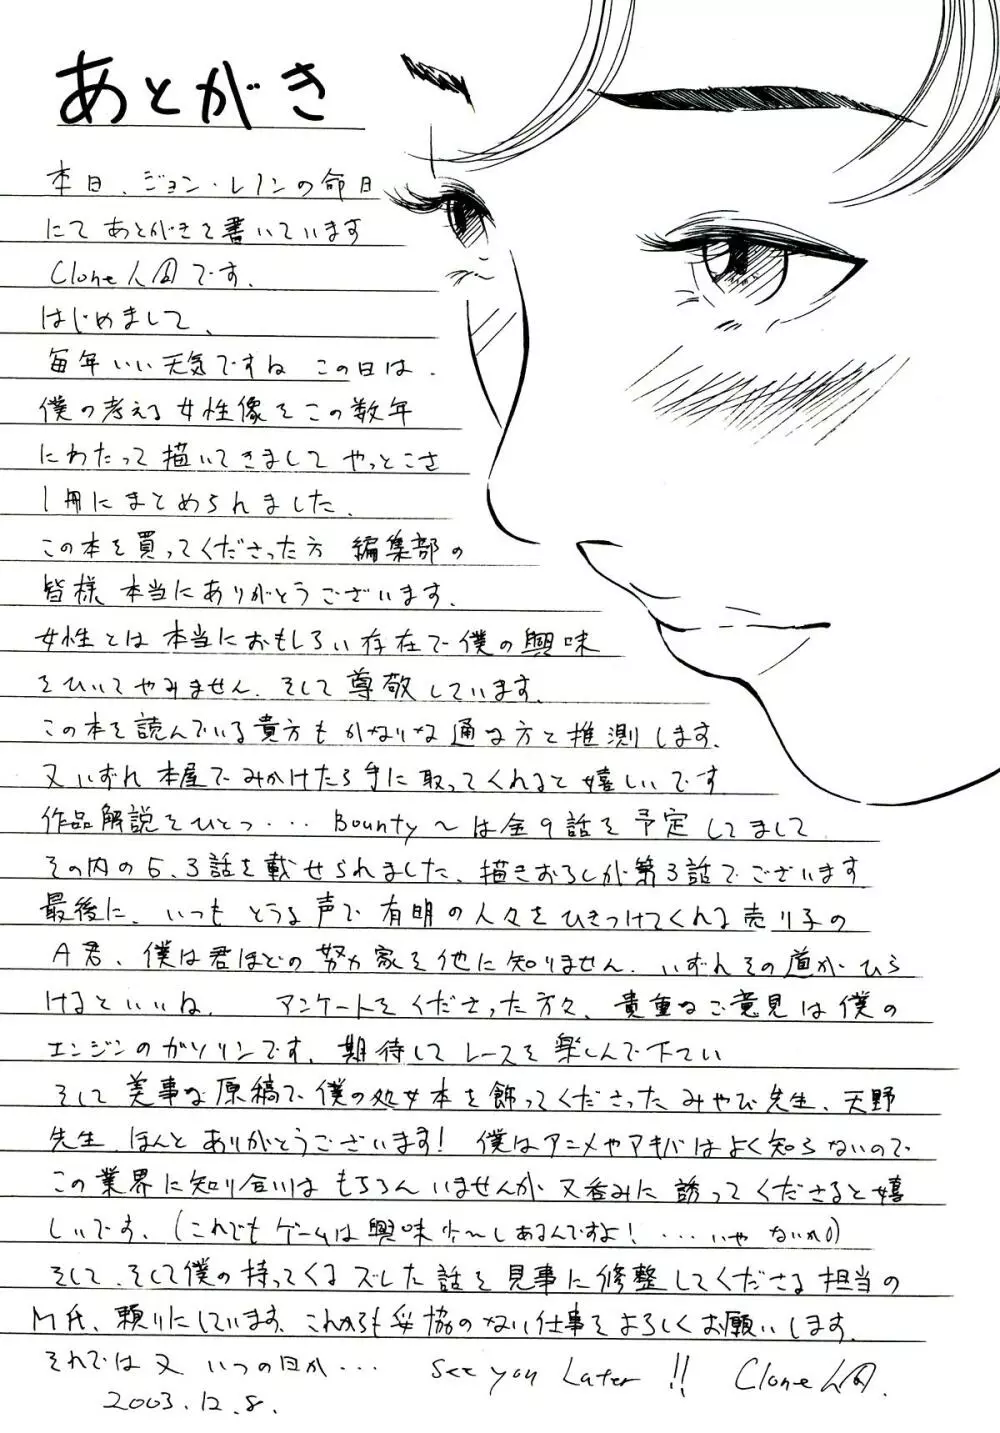 あとがき
本日、ジョン・レノンの命日
にてあとがきを書いています
Clone人間です.
はじめまして、
毎年いい天気ですね この日は.
僕の考える女性像をこの数年
にわたって描いてきまして やっとこさ
1冊にまとめられました.
この本を買ってくださった方 編集部の
皆様 本当にありがとうございます.
女性とは本当におもしろい存在で僕の興味
をひいてやみません. そして尊敬しています.
この本を読んでいる貴方もかなりな通な方と推測します.
又いずれ本屋でみかけたら手に取ってくれると嬉しいです
作品解説をひとつ・・・ Bounty〜は全9話を予定してまして
その内の5.3話を載せられました、描きおろしが第3話でございます
最後に、いつもどうる声で有明の人々をひきつけてくれる売り子の
A君、僕は君ほどの努力家を他に知りません. いずれその道がひら
けるといいね. アンケートをくださった方々、貴重なご意見は僕の
エンジンのガソリンです、期待してレースを楽しんで下さい
そして美事な原稿で僕の処女本を飾ってくださったみやび先生、天野
先生 ほんとありがとうございます! 僕はアニメやアキバはよく知らないので
この業界に知り合いはもちろんいませんが又呑みに誘ってくださると嬉
しいです、(これでもゲームは興味少〜しあるんですよ! ・・・いや ないか0)
そして、そして僕の持ってくるズレた話を見事に修整してくださる担当の
M氏、頼りにしています、これからも妥協のない仕事をよろしくお願いします.
それでは又 いつの日か・・・ see you Later !! Clone人間.
2003.12.8.